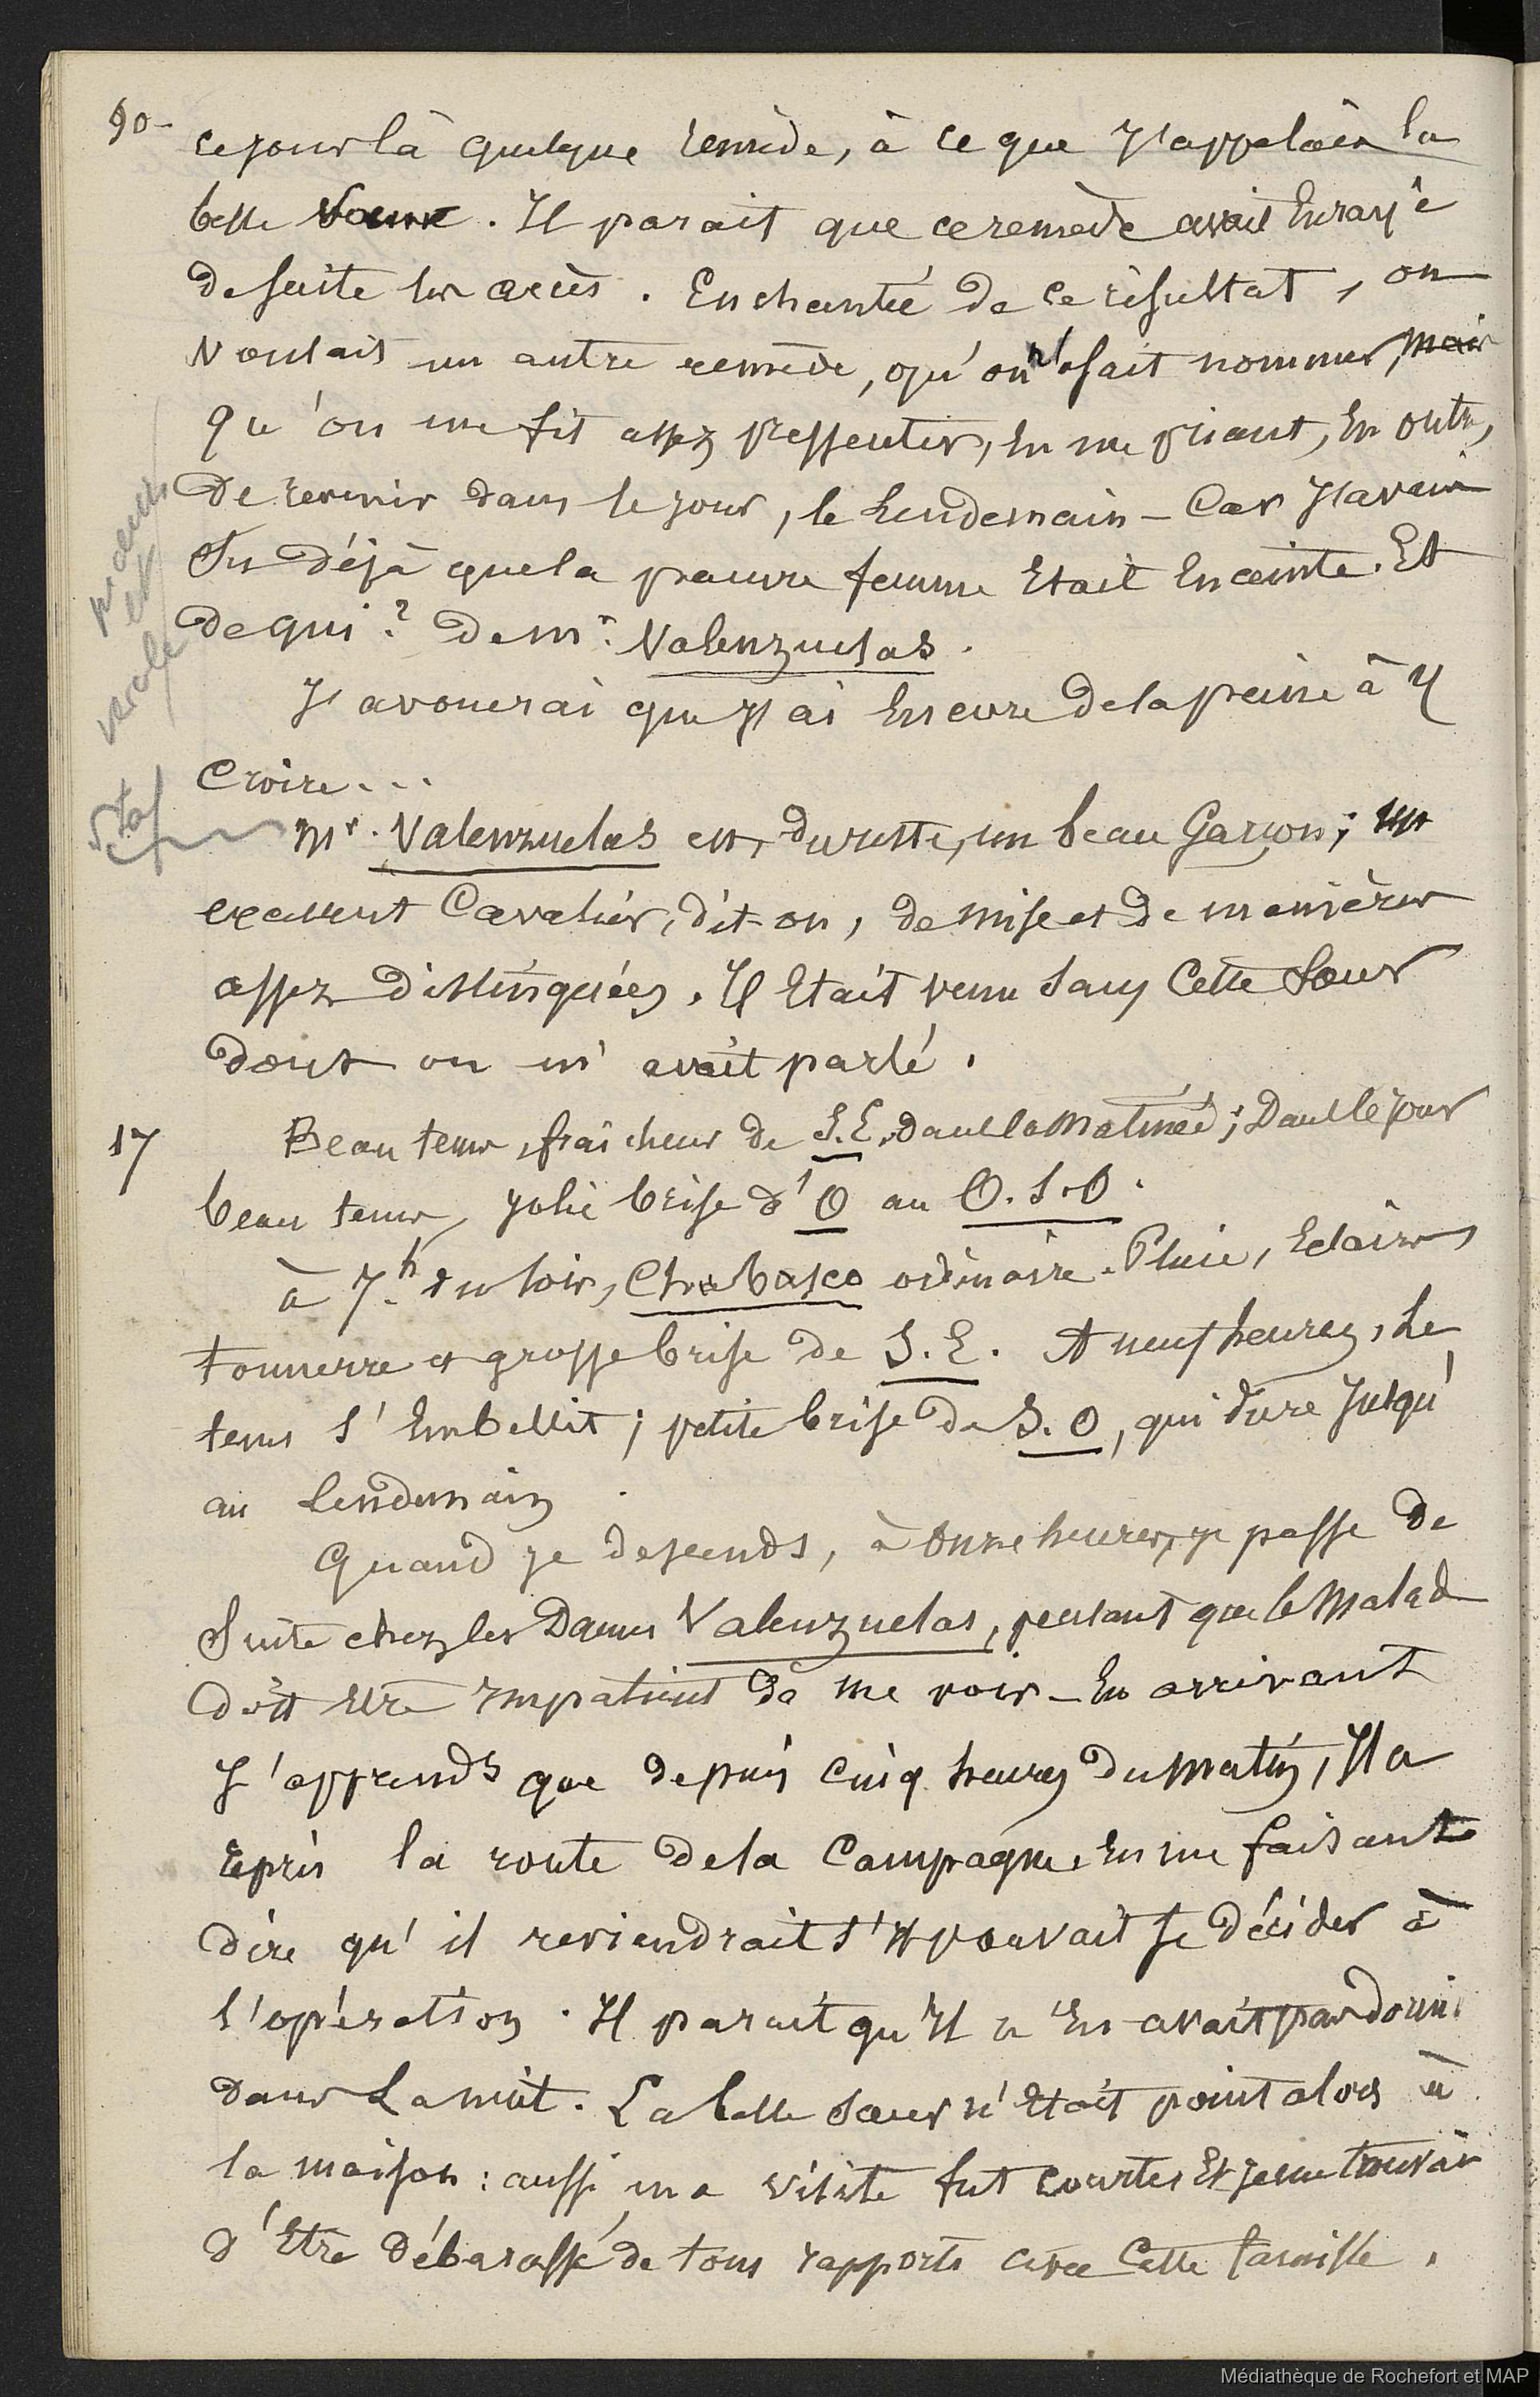 90-
ce jour là quelque remède, à ce que J'appelais la
belle soeur. Il parait que ce remède avait Enrayé
de suite les accès. Enchantée de ce résultat, on
voulait un autre remède, qu'on n'osait nommer, mais
qu'on me fit assez pressentir, En me priant, En outre,
De revenir dans le jour, le Lendemain - Car J'avais
Su déjà que la pauvre femme Etait Enceinte. Et
de qui? De mr. Valenzuelas.
J'avouerai que J'ai Encore de la peine à y
Croire...
Mr. Valenzuelas est, du reste, un beau Garçon; un
excellent Cavalier, dit-on, de mise et de manières
assez Distinguées. Il Etait venu sans Cette Soeur
dont on m'avait parlé.
moeurs
et
morale
17
Beau tems, fraîcheur de S.E. dans la matinée; Dans le jour
beau tems, Jolie brise d'O au O.S.O.
à 7h du soir, Chubasco ordinaire. Pluie, Eclairs
tonnerre et grosse brise de S.E. A neuf heures, Le
tems s'Embellit; petite brise de S.O, qui dure Jusqu'
au Lendemain.
Quand je descends, à Onze heures, je passe de
Suite chez les Dames Valenzuelas, pensant que le Malade
doit Etre Impatient de me voir - En arrivant
J'apprends que depuis cinq heures du matin, Il a
repris la route de la Campagne, En me faisant
dire qu'il reviendrait s'Il pouvait se décider à
l'opération. Il parait qu'Il n'En avait pas dormi
dans La nuit. La belle soeur n'Etait point alors à
la maison: aussi ma visite fut courte; Et je me trouvais
d'Etre débarassé de tous rapports avec Cette famille.
Médiathèque de Rochefort et MAP